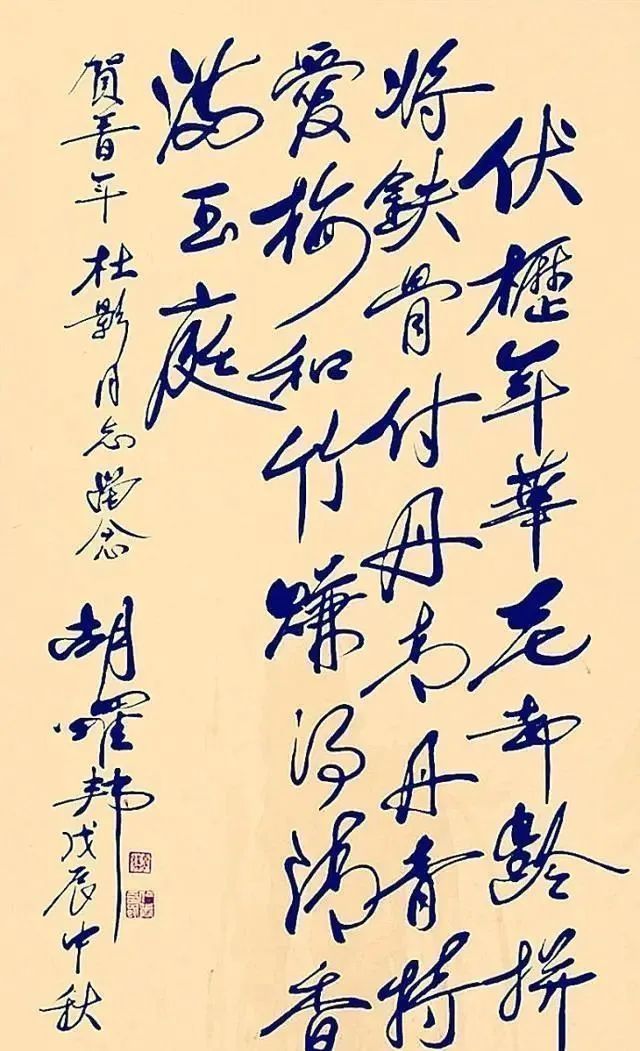 伏櫪年華忘却齡拼
将鉄骨付丹青丹青特
愛梅和竹賺得清香
满玉庭
賀青年杜影同志念
胡耀邦
戊辰中秋